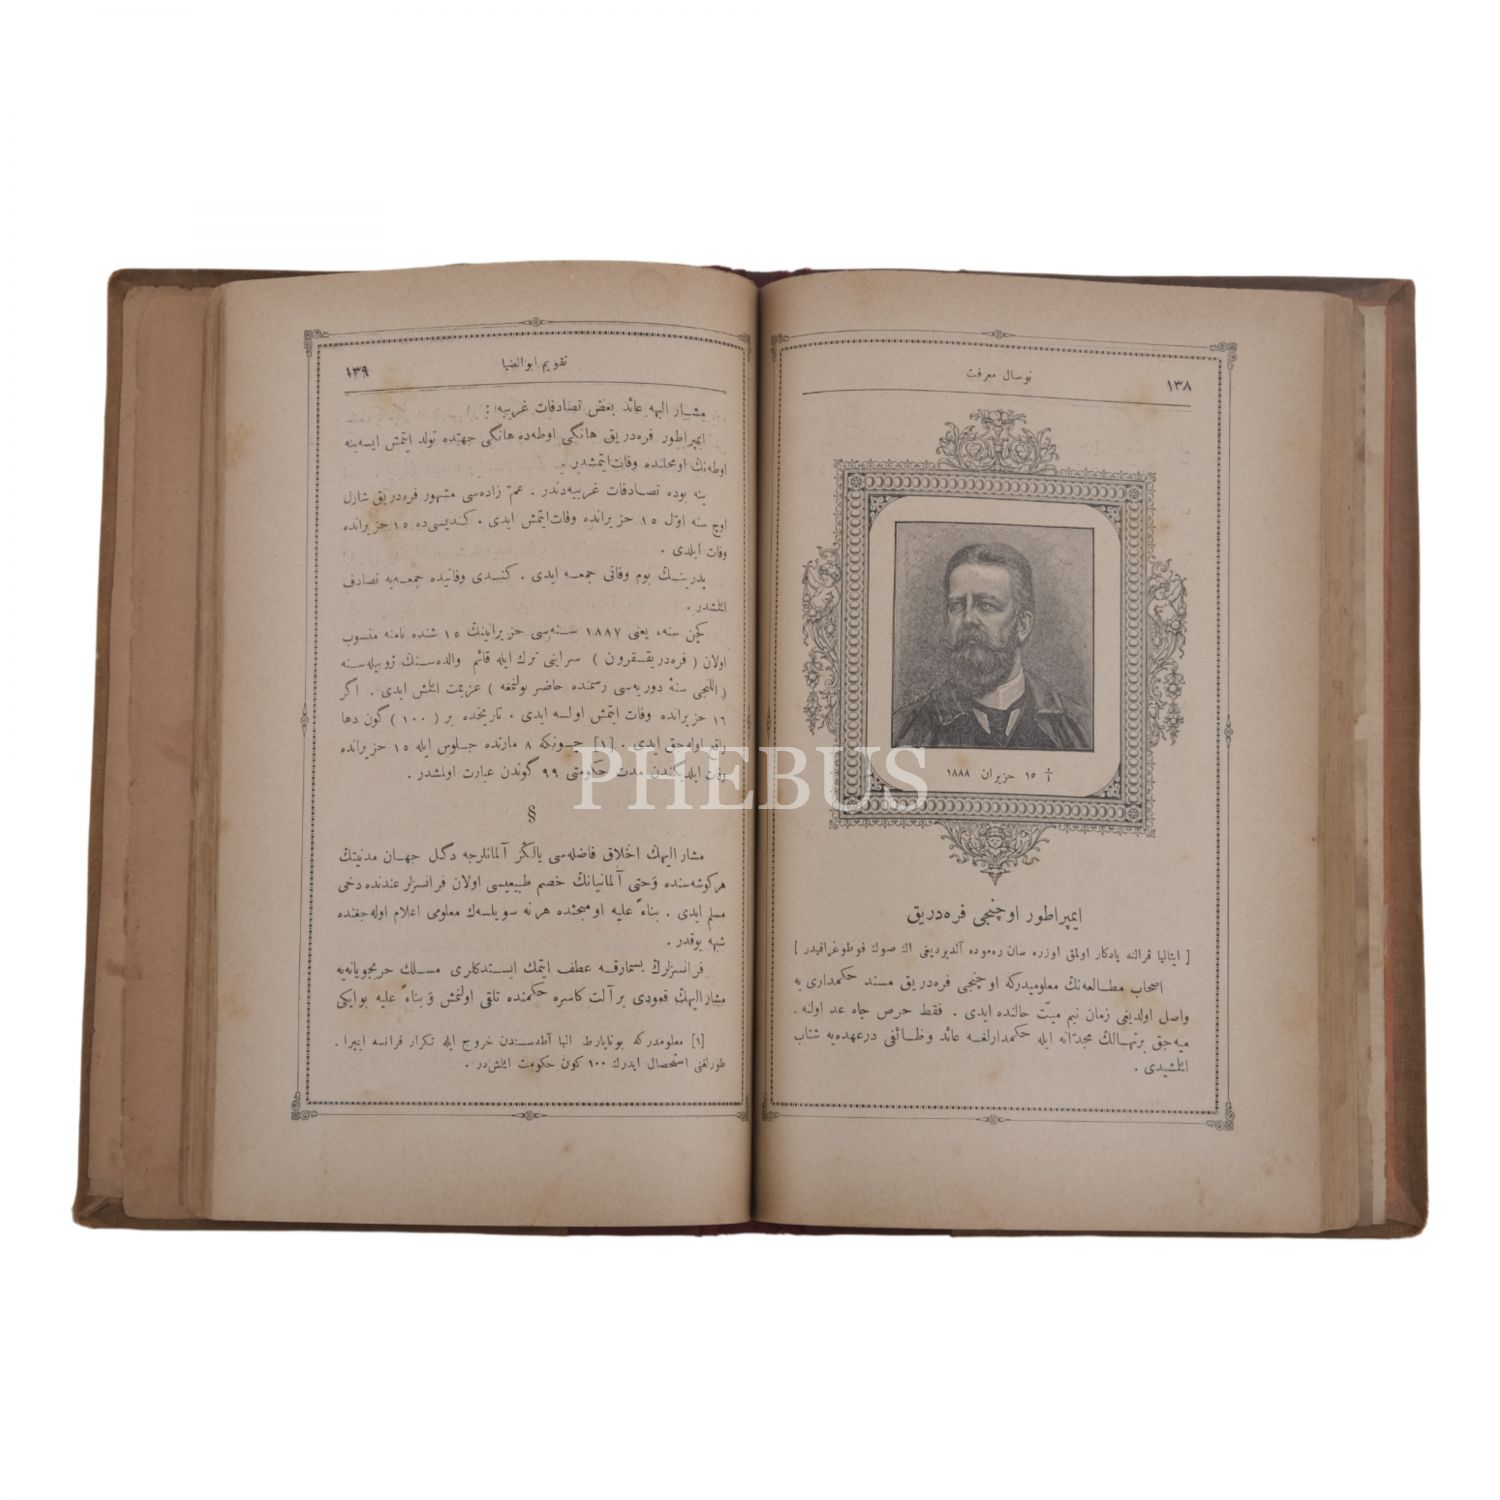 ١٣٨
نوسال معرفت
† ١٥ حزيران ١٨٨٨
ايمپراطور اوچنجى فره‌دريق
[ ايتاليا قرالنه يادكار اولمق اوزره سان ره‌موده آلديرديغى اك صوك فوطوغرافيدر ]
اصحاب مطالعه‌نك معلوميدركه اوچنجى فره‌دريق مسند حكمدارى يه
واصل اولديغى زمان نيم ميت حالنده ايدى . فقط حرص جاه عد اولنه .
ميه‌جق برتهالك مجدانه ايله حكمدارلغه عائد وظائفى درعهده‌يه شتاب
ائلشيدى .
تقويم ابوالضيا
١٣٩
مشار اليهه عائد بعض تصادفات غريبه :
ايمپراطور فره‌دريق هانگى اوطه‌ده هانگى جهتده تولد ايتمش ايسه‌ينه
اوطه‌نك اومحلنده وفات‌ايتمشدر .
ينه بوده تصادفات غريبه‌دندر . عم زاده‌سى مشهور فره‌دريق شارل
اوچ سنه اول ١٥ حزيرانده وفات‌ايتمش ايدى . كنديسى‌ده ١٥ حزيرانده
وفات ايلدى .
پدرينك يوم وفاتى جمعه ايدى . كندى وفاتيده جمعه‌يه تصادف
ائلشدر .
كچن سنه، يعنى ١٨٨٧ سنه‌سى حزيرانينك ١٥ شنده نامنه منسوب
اولان ( فره‌دريقسقرون ) سراينى ترك ايله قائم والده‌سنك ژوبيله‌سنه
( اللنجى سنهٔ دوريه‌سى رسمنده حاضر بولنمغه ) عزيمت ائلش ايدى . اگر
١٦ حزيرانده وفات ايتمش اولسه ايدى . تاريخده بر ( ١٠٠ ) گون دها
واقع اوله‌جق ايدى . [١] چونكه ٨ مارتده جلوس ايله ١٥ حزيرانده
وفات ايلديكندن مدت حكومتى ٩٩ گوندن عبارت اولمشدر .
§
مشار اليهك اخلاق فاضله‌سى يالكز آلمانلرجه دگل جهان مدنيتك
هر كوشه‌سنده وحتى آلمانيانك خصم طبيعيسى اولان فرانسزلر عندنده دخى
مسلم ايدى . بناءً عليه او مبحثده هرنه سويلسه‌ك معلومى اعلام اوله‌جغنده
شبهه يوقدر .
فرانسزلرك بسمارقه عطف ايتمك ايستدكلرى مسلك حربجويانه‌يه
مشار اليهك قعودى بر آلت كاسره حكمنده تلقى اولنمش و بناءً عليه بوايكى
[١] معلومدركه بوناپارط البا آطه‌سندن خروج ايله تكرار فرانسه ايمپرا .
طورلغنى استحصال ايدرك ١٠٠ كون حكومت ائلش‌در .
PHEBUS